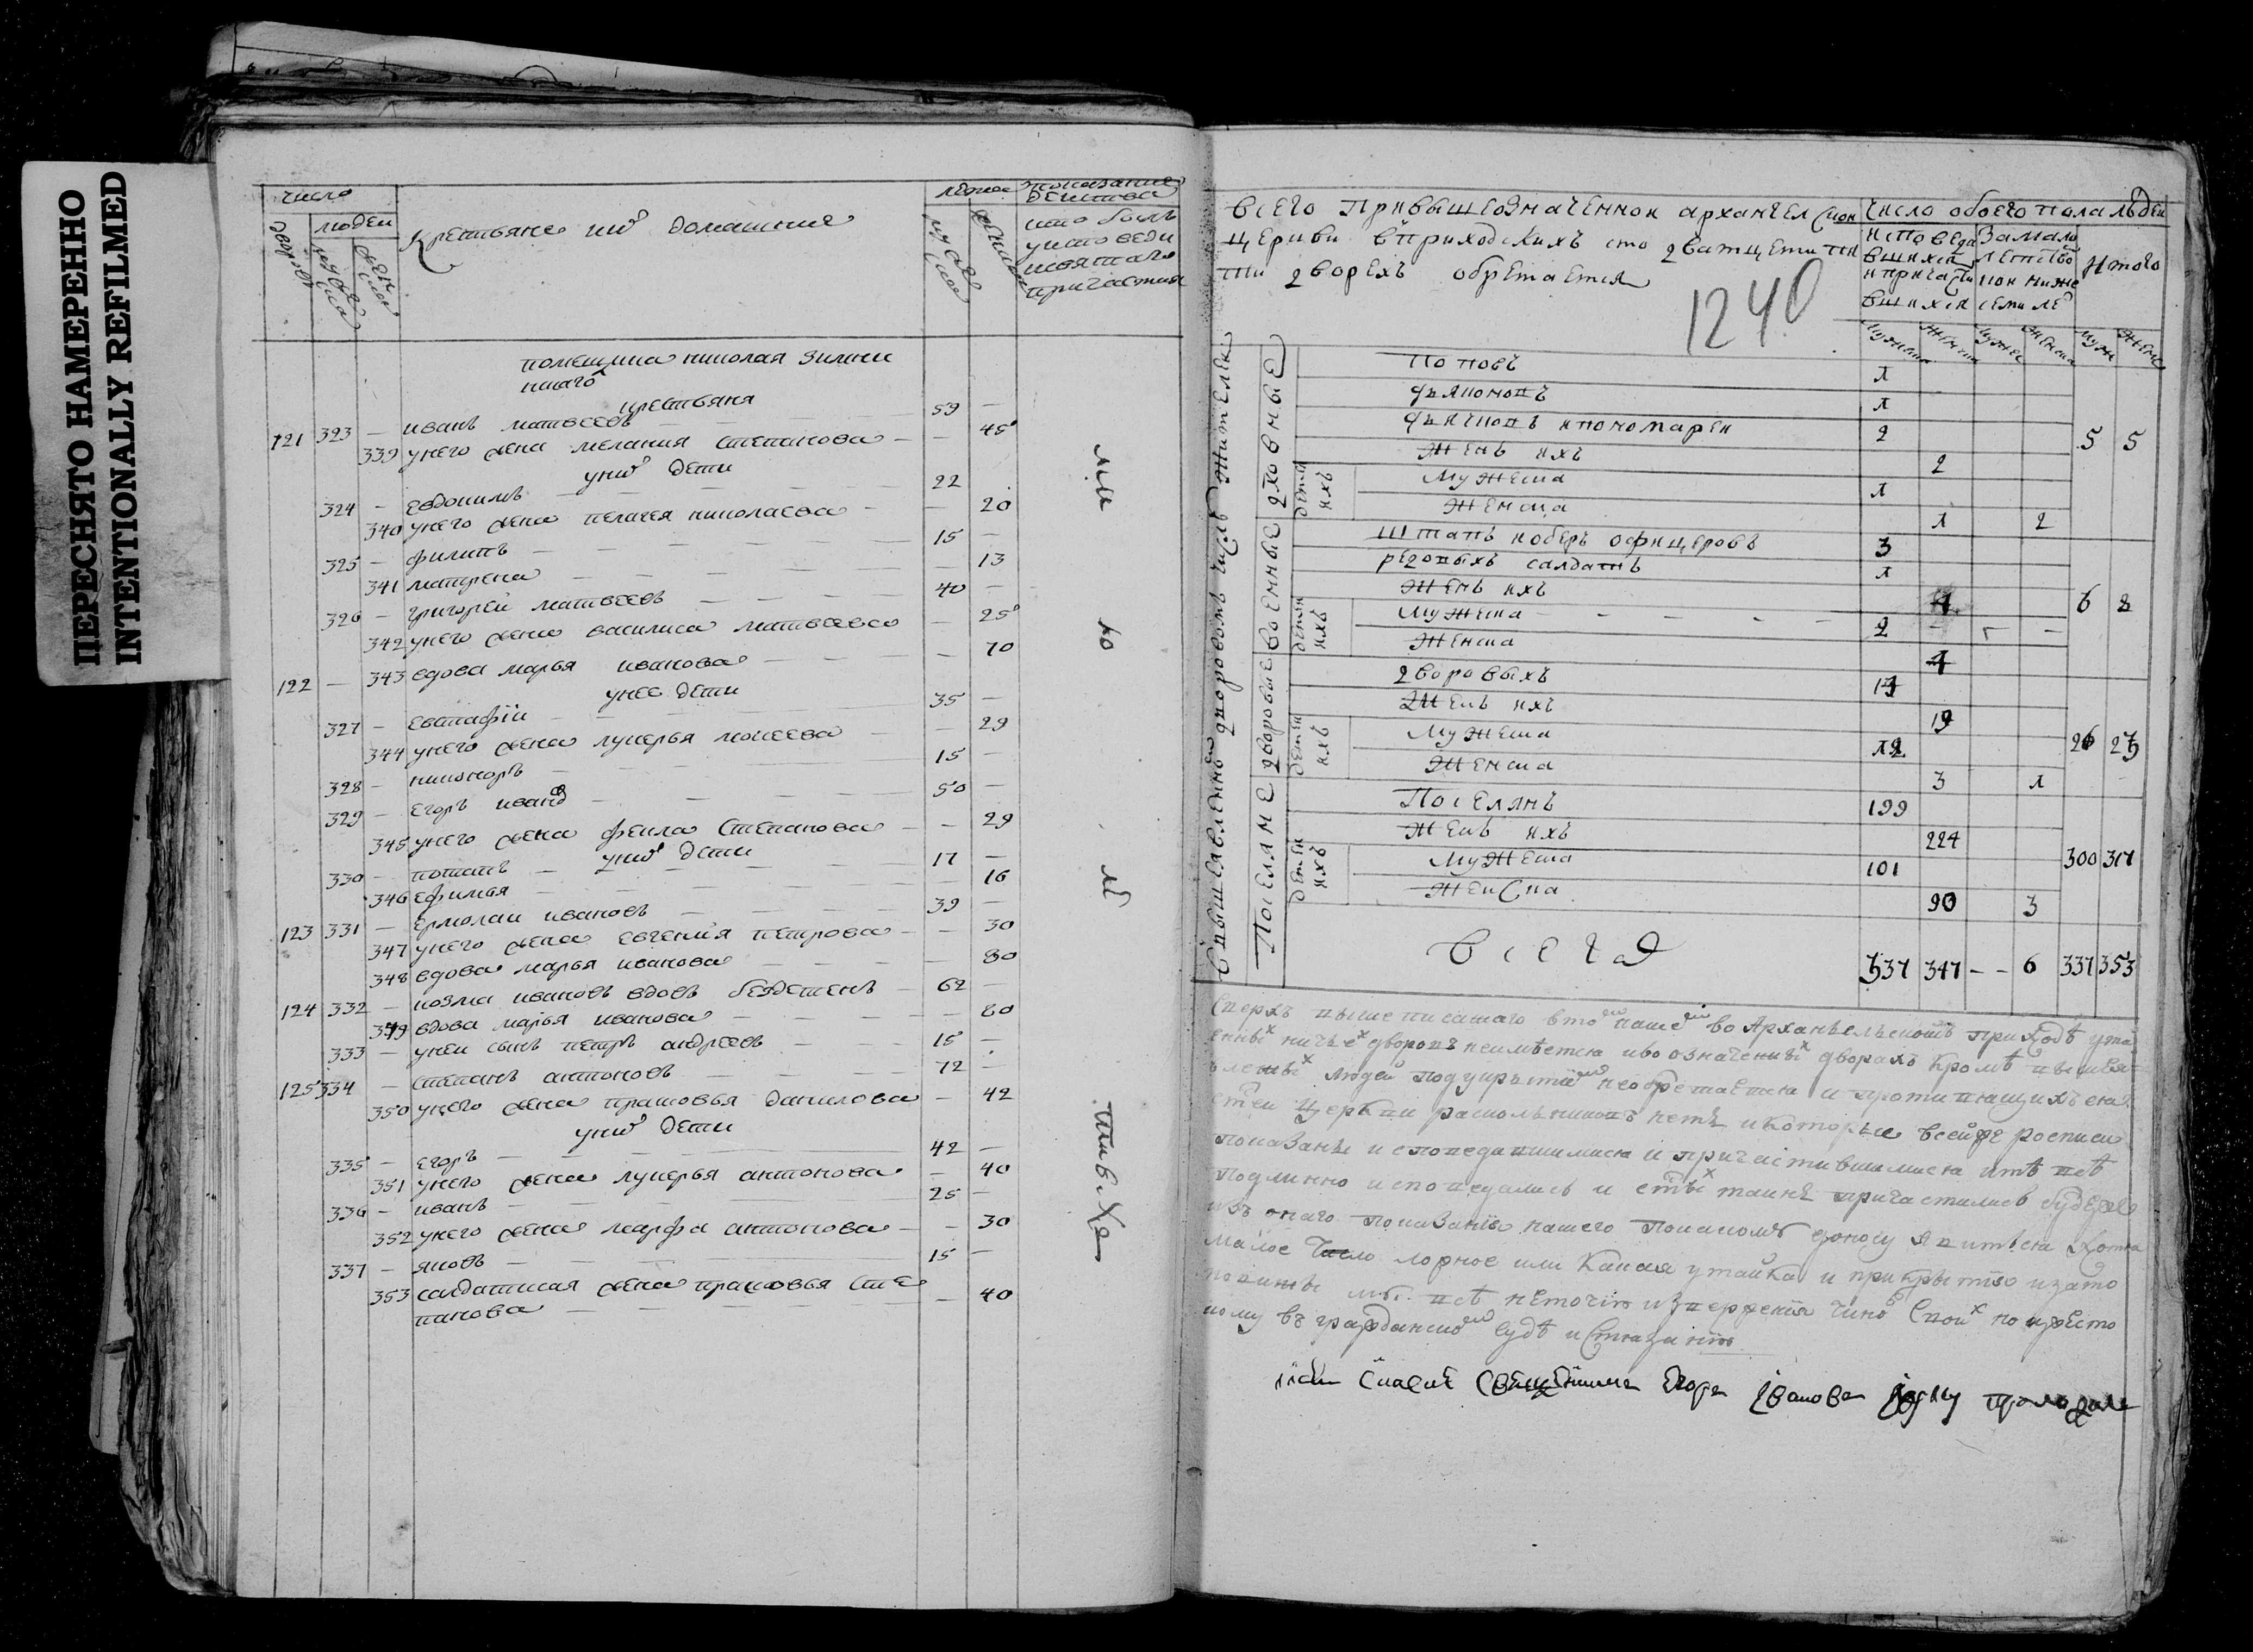 ПЕРЕСНЯТО НАМЕРЕННО
INTENTIONALLY REFILMED
число
дворовъ
людей
мужеска
женска
крестьяне ихъ домашние
лета
мужеска
женска
показание
действа
кто былъ
у исповеди
и святаго
причастия
помещика николая
крестьяня
121 323 — иванъ матвеевъ — 59 —
339 у него жена мелания степанова — — 45
у них дети
324 — евдокимъ — 22
340 у него жена пелагея николаева — — 20
325 — филипъ — 15 —
341 матрена — — 13
326 — григорей матвеевъ — 40 —
342 у него жена василиса матвеева — 25
122 — 343 вдова марья иванова — — 70
у нее дети
327 — евстафiй — 35 —
344 у него жена лукерья моисеева — — 29
328 — никоноръ — 15 —
329 — егоръ иванов — 50 —
345 у него жена фекла степанова — — 29
у них дети
330 — потапъ — 17 —
346 ефимья — 16
123 331 — ермолаи ивановъ — 39 —
347 у него жена евгения петрова — — 30
348 вдова марья иванова — — 80
124 332 — козма ивановъ вдовъ бездетенъ — 62 —
349 вдова марья иванова — — 60
333 — у неи сынъ петръ андреевъ — 15 —
125 334 — степанъ антоновъ — 72 —
350 у него жена прасковья данилова — 42
у них дети
335 — егоръ — 42 —
351 у него жена лукерья антонова — 40
336 — иванъ — 25 —
352 у него жена марфа антонова — — 30
337 — яковъ — 15 —
353 салдатская жена прасковья сте
панова — — 40
всего при вышеозначеннои архангелскои
церкви в приходскихъ сто дватцети пя
ти дворехъ обретается
1240
число обоего пола людеи
исповеда
вшихся
и причасти
вшихся
за мало
летство
нои ниже
семи ле
итого
мужеска женска мужес женска муж женс
духовные
поповъ 1
дьяконовъ 1
дьячковъ и пономареи 2
женъ ихъ 2
детеи ихъ
мужеска 1
женска 1 2
5 5
военные
штапъ и оберъ офицеровъ 3
редовыхъ салдатъ 1
женъ ихъ 4
детеи ихъ
мужеска 2
женска 4
6 8
дворовые
дворовыхъ
женъ ихъ 19
детеи ихъ
мужеска 12
женска 3 1
26
поселяне
поселянъ 199
женъ ихъ 224
детеи ихъ
мужеска 101
женска 90 3
300 317
всего 337 347 — — 6 337 353
сверхъ вышеписаннаго в том нашем во Архангельскомъ приходѣ утае
ных ничьех дворовъ неимѣется и во означеных дворахъ кромѣ выше
людей под укрытием необретается и противящихъся
церкви раскольниковъ нетъ и которые в сей же росписи
показаны исповедавшимися и причастившимися и тѣ всѣ
подлинно исповедались и святых таинъ причастились буде же
изъ онаго показания нашего по какомъ доносу явитъся хотя
малое число ложное или какая утайка и прикрытие и за то
повинны мы всѣ неточию извержения чинов своих но и жесто
кому въ гражданском судѣ истязанию
Егоръ Iвановъ руку приложилъ